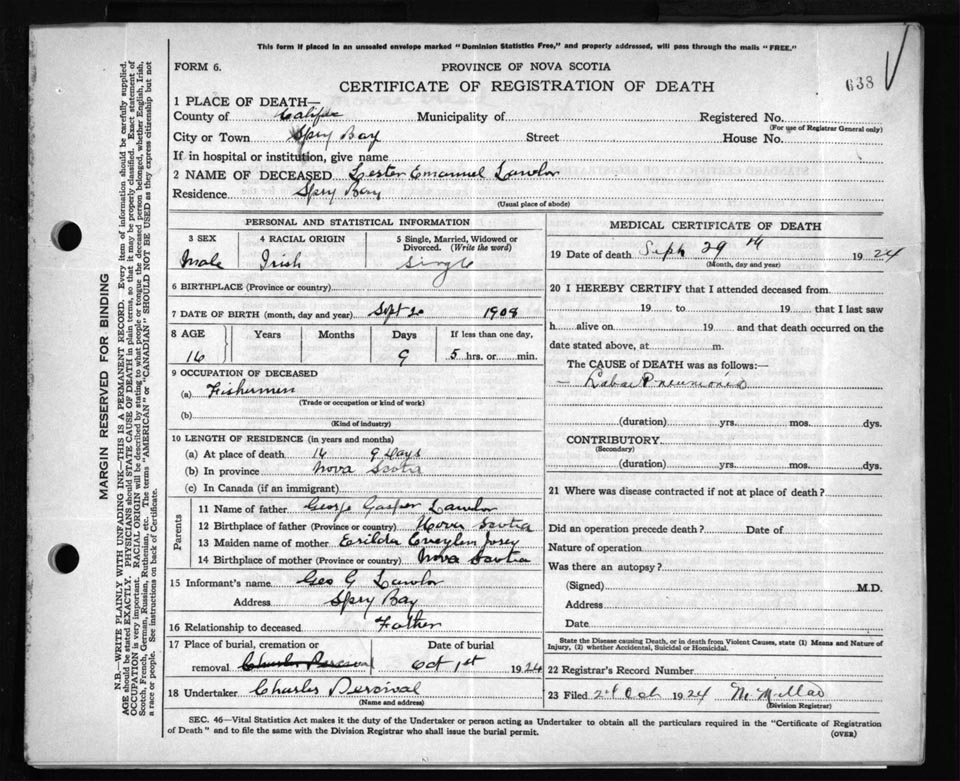 This form if placed in an unsealed envelope marked "Dominion Statistics Free," and properly addressed, will pass through the mails "FREE."
FORM 6.
PROVINCE OF NOVA SCOTIA
638
CERTIFICATE OF REGISTRATION OF DEATH
1 PLACE OF DEATH—
County of Halifax Municipality of Registered No.
(For use of Registrar General only)
City or Town Spry Bay Street House No.
If in hospital or institution, give name
2 NAME OF DECEASED Lester Emanuel Lawlor
Residence Spry Bay
(Usual place of abode)
PERSONAL AND STATISTICAL INFORMATION
3 SEX 4 RACIAL ORIGIN 5 Single, Married, Widowed or Divorced. (Write the word)
Male Irish Single
6 BIRTHPLACE (Province or country)
7 DATE OF BIRTH (month, day and year) Sept 20 1908
8 AGE Years Months Days If less than one day,
16 9 5 hrs. or min.
9 OCCUPATION OF DECEASED
(a) Fishermen
(Trade or occupation or kind of work)
(b)
(Kind of industry)
10 LENGTH OF RESIDENCE (in years and months)
(a) At place of death 16 9 Days
(b) In province Nova Scotia
(c) In Canada (if an immigrant)
Parents
11 Name of father George Gasper Lawlor
12 Birthplace of father (Province or country) Nova Scotia
13 Maiden name of mother Josey
14 Birthplace of mother (Province or country) Nova Scotia
15 Informant's name Geo G Lawlor
Address Spry Bay
16 Relationship to deceased Father
17 Place of burial, cremation or Date of burial
removal Oct 1st 1924
18 Undertaker Charles Percival
(Name and address)
MEDICAL CERTIFICATE OF DEATH
19 Date of death Sept 29th 1924
(Month, day and year)
20 I HEREBY CERTIFY that I attended deceased from
19 to 19 that I last saw
h alive on 19 and that death occurred on the
date stated above, at m.
The CAUSE OF DEATH was as follows:—
— Lobar Pneumonia
(duration) yrs. mos. dys.
CONTRIBUTORY
(Secondary)
(duration) yrs. mos. dys.
21 Where was disease contracted if not at place of death?
Did an operation precede death? Date of
Nature of operation
Was there an autopsy?
(Signed) M.D.
Address
Date
State the Disease causing Death, or in death from Violent Causes, state (1) Means and Nature of
Injury, (2) whether Accidental, Suicidal or Homicidal.
22 Registrar's Record Number
23 Filed 2nd Oct 1924
(Division Registrar)
SEC. 46—Vital Statistics Act makes it the duty of the Undertaker or person acting as Undertaker to obtain all the particulars required in the "Certificate of Registration
of Death" and to file the same with the Division Registrar who shall issue the burial permit.
(OVER)
MARGIN RESERVED FOR BINDING
N.B. WRITE PLAINLY WITH UNFADING INK—THIS IS A PERMANENT RECORD. Every item of information should be carefully supplied.
AGE should be stated EXACTLY. PHYSICIANS should STATE CAUSE OF DEATH in plain terms, so that it may be properly classified. Exact statement of
OCCUPATION is very important. RACIAL ORIGIN will be described by stating to what people or tongue the deceased person belonged, whether English, Irish,
Scotch, French, German, Russian, Ruthenian, etc. The terms "AMERICAN" or "CANADIAN" SHOULD NOT BE USED as they express citizenship but not
a race or people. See instructions on back of Certificate.